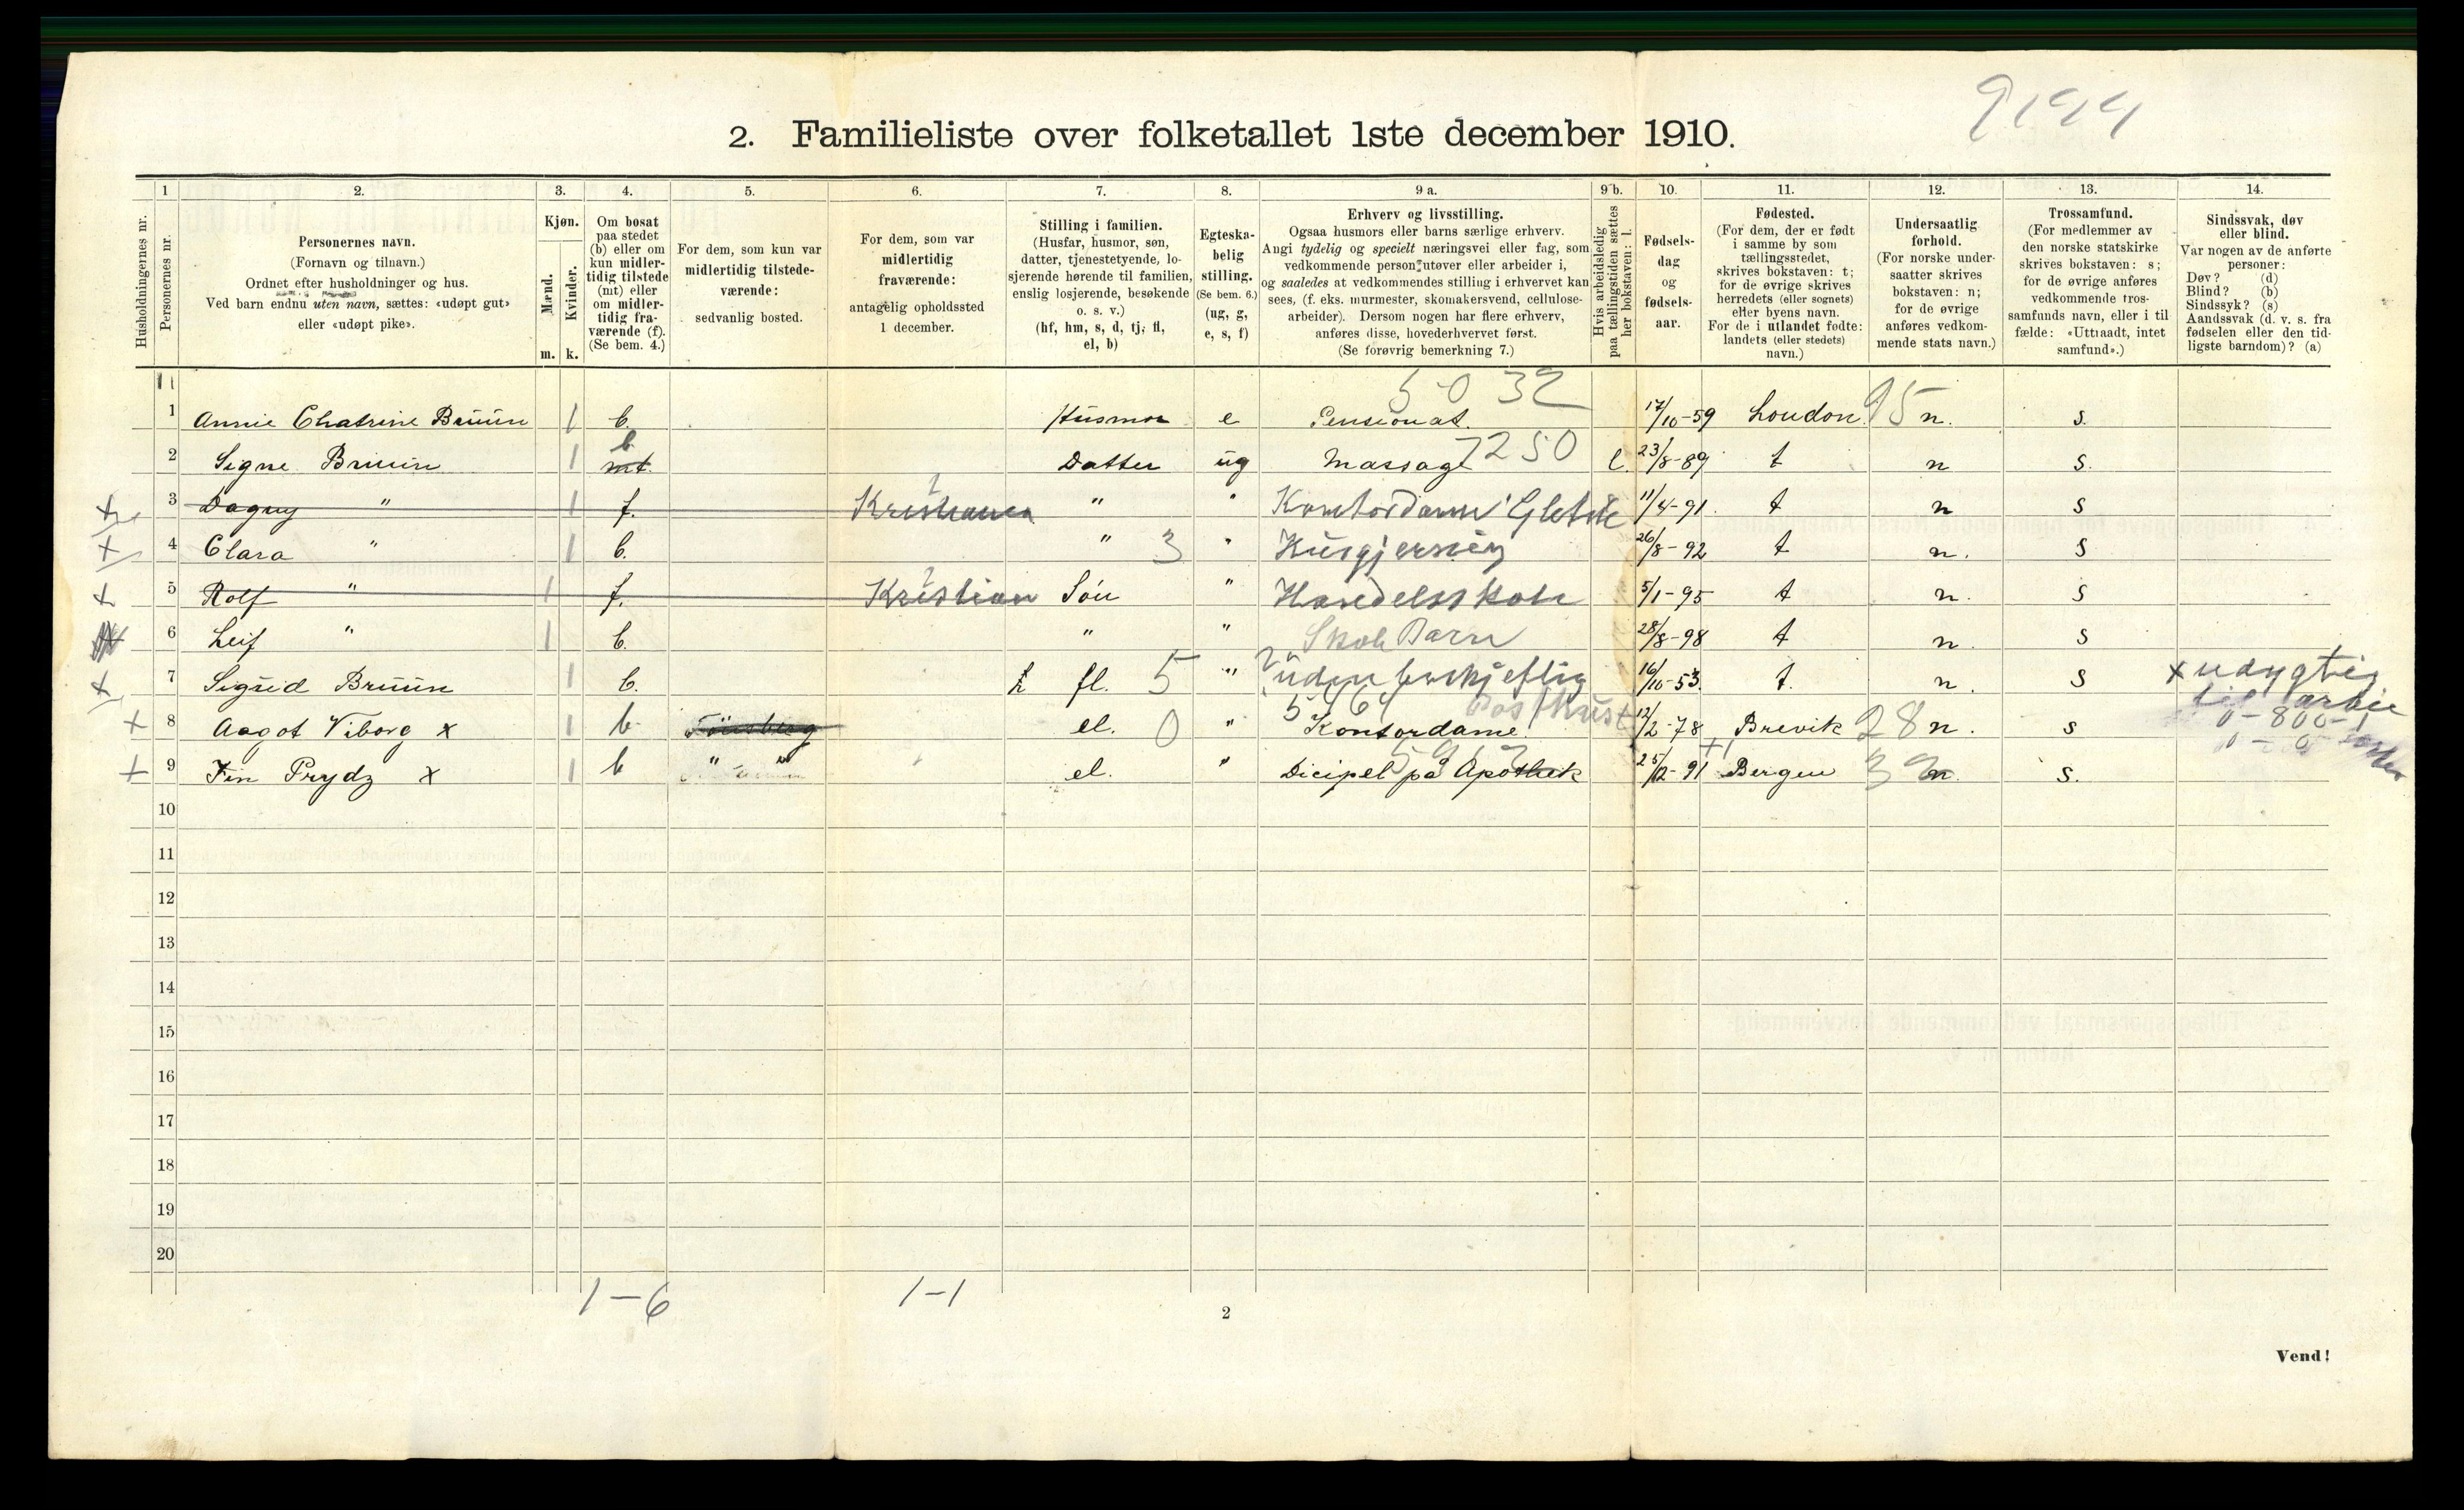 9194
2. Familieliste over folketallet 1ste december 1910.
1 2. 3. 4. 5. 6. 7. 8. 9 a. 9 b. 10. 11. 12. 13. 14.
Husholdningernes nr.
Personernes nr.
Personernes navn.
(Fornavn og tilnavn.)
Ordnet efter husholdninger og hus.
Ved barn endnu uten navn, sættes: «udøpt gut»
eller «udøpt pike».
Kjøn.
Mænd.
Kvinder.
m. k.
Om bosat
paa stedet
(b) eller om
kun midler-
tidig tilstede
(mt) eller
om midler-
tidig fra-
værende (f).
(Se bem. 4.)
For dem, som kun var
midlertidig tilstede-
værende:
sedvanlig bosted.
For dem, som var
midlertidig
fraværende:
antagelig opholdssted
1 december.
Stilling i familien.
(Husfar, husmor, søn,
datter, tjenestetyende, lo-
sjerende hørende til familien,
enslig losjerende, besøkende
o. s. v.)
(hf, hm, s, d, tj, fl,
el, b)
Egteska-
belig
stilling.
(Se bem. 6.)
(ug, g,
e, s, f)
Erhverv og livsstilling.
Ogsaa husmors eller barns særlige erhverv.
Angi tydelig og specielt næringsvei eller fag, som
vedkommende person utøver eller arbeider i,
og saaledes at vedkommendes stilling i erhvervet kan
sees, (f. eks. murmester, skomakersvend, cellulose-
arbeider). Dersom nogen har flere erhverv,
anføres disse, hovederhvervet først.
(Se forøvrig bemerkning 7.)
Hvis arbeidsledig
paa tællingstiden sættes
her bokstaven: l.
Fødsels-
dag
og
fødsels-
aar.
Fødested.
(For dem, der er født
i samme by som
tællingsstedet,
skrives bokstaven: t;
for de øvrige skrives
herredets (eller sognets)
eller byens navn.
For de i utlandet fødte:
landets (eller stedets)
navn.)
Undersaatlig
forhold.
(For norske under-
saatter skrives
bokstaven: n;
for de øvrige
anføres vedkom-
mende stats navn.)
Trossamfund.
(For medlemmer av
den norske statskirke
skrives bokstaven: s;
for de øvrige anføres
vedkommende tros-
samfunds navn, eller i til
fælde: «Uttraadt, intet
samfund».)
Sindssvak, døv
eller blind.
Var nogen av de anførte
personer:
Døv? (d)
Blind? (b)
Sindssyk? (s)
Aandssvak (d. v. s. fra
fødselen eller den tid-
ligste barndom)? (a)
5032
1 Annie Chatrine Bruun 1 b. Husmor e Pensionat. 17/10-59 London 95 n. s.
2 Signe Bruun 1 mt. b Datter ug Massage 7250 l. 23/8-89 t n s.
3 Dagny " 1 f. Kristiania " " Kontordame 11/4-91 t n s
4 Clara " 1 b. " 3 " Husgjerning 26/8-92 t n. s
5 Rolf " 1 f. Kristian Søn " Handelsskole 5/1-95 t n. s
6 Leif " 1 b. " " Skole Barn 28/8-98 t n. s
7 Sigrid Bruun 1 b. fl. 5 " uden 16/10-53. t. n. s x udygtig
8 Aagot Viborg x 1 b Tönsberg el. 0 " Kontordame 12/2-78 Brevik 28 n. s
9 Fin Prydz x 1 b " el. " Dicipel på Apothek 25/12-91 Bergen n. s.
10
11
12
13
14
15
16
17
18
19
20
1-6 1-1
2
Vend!